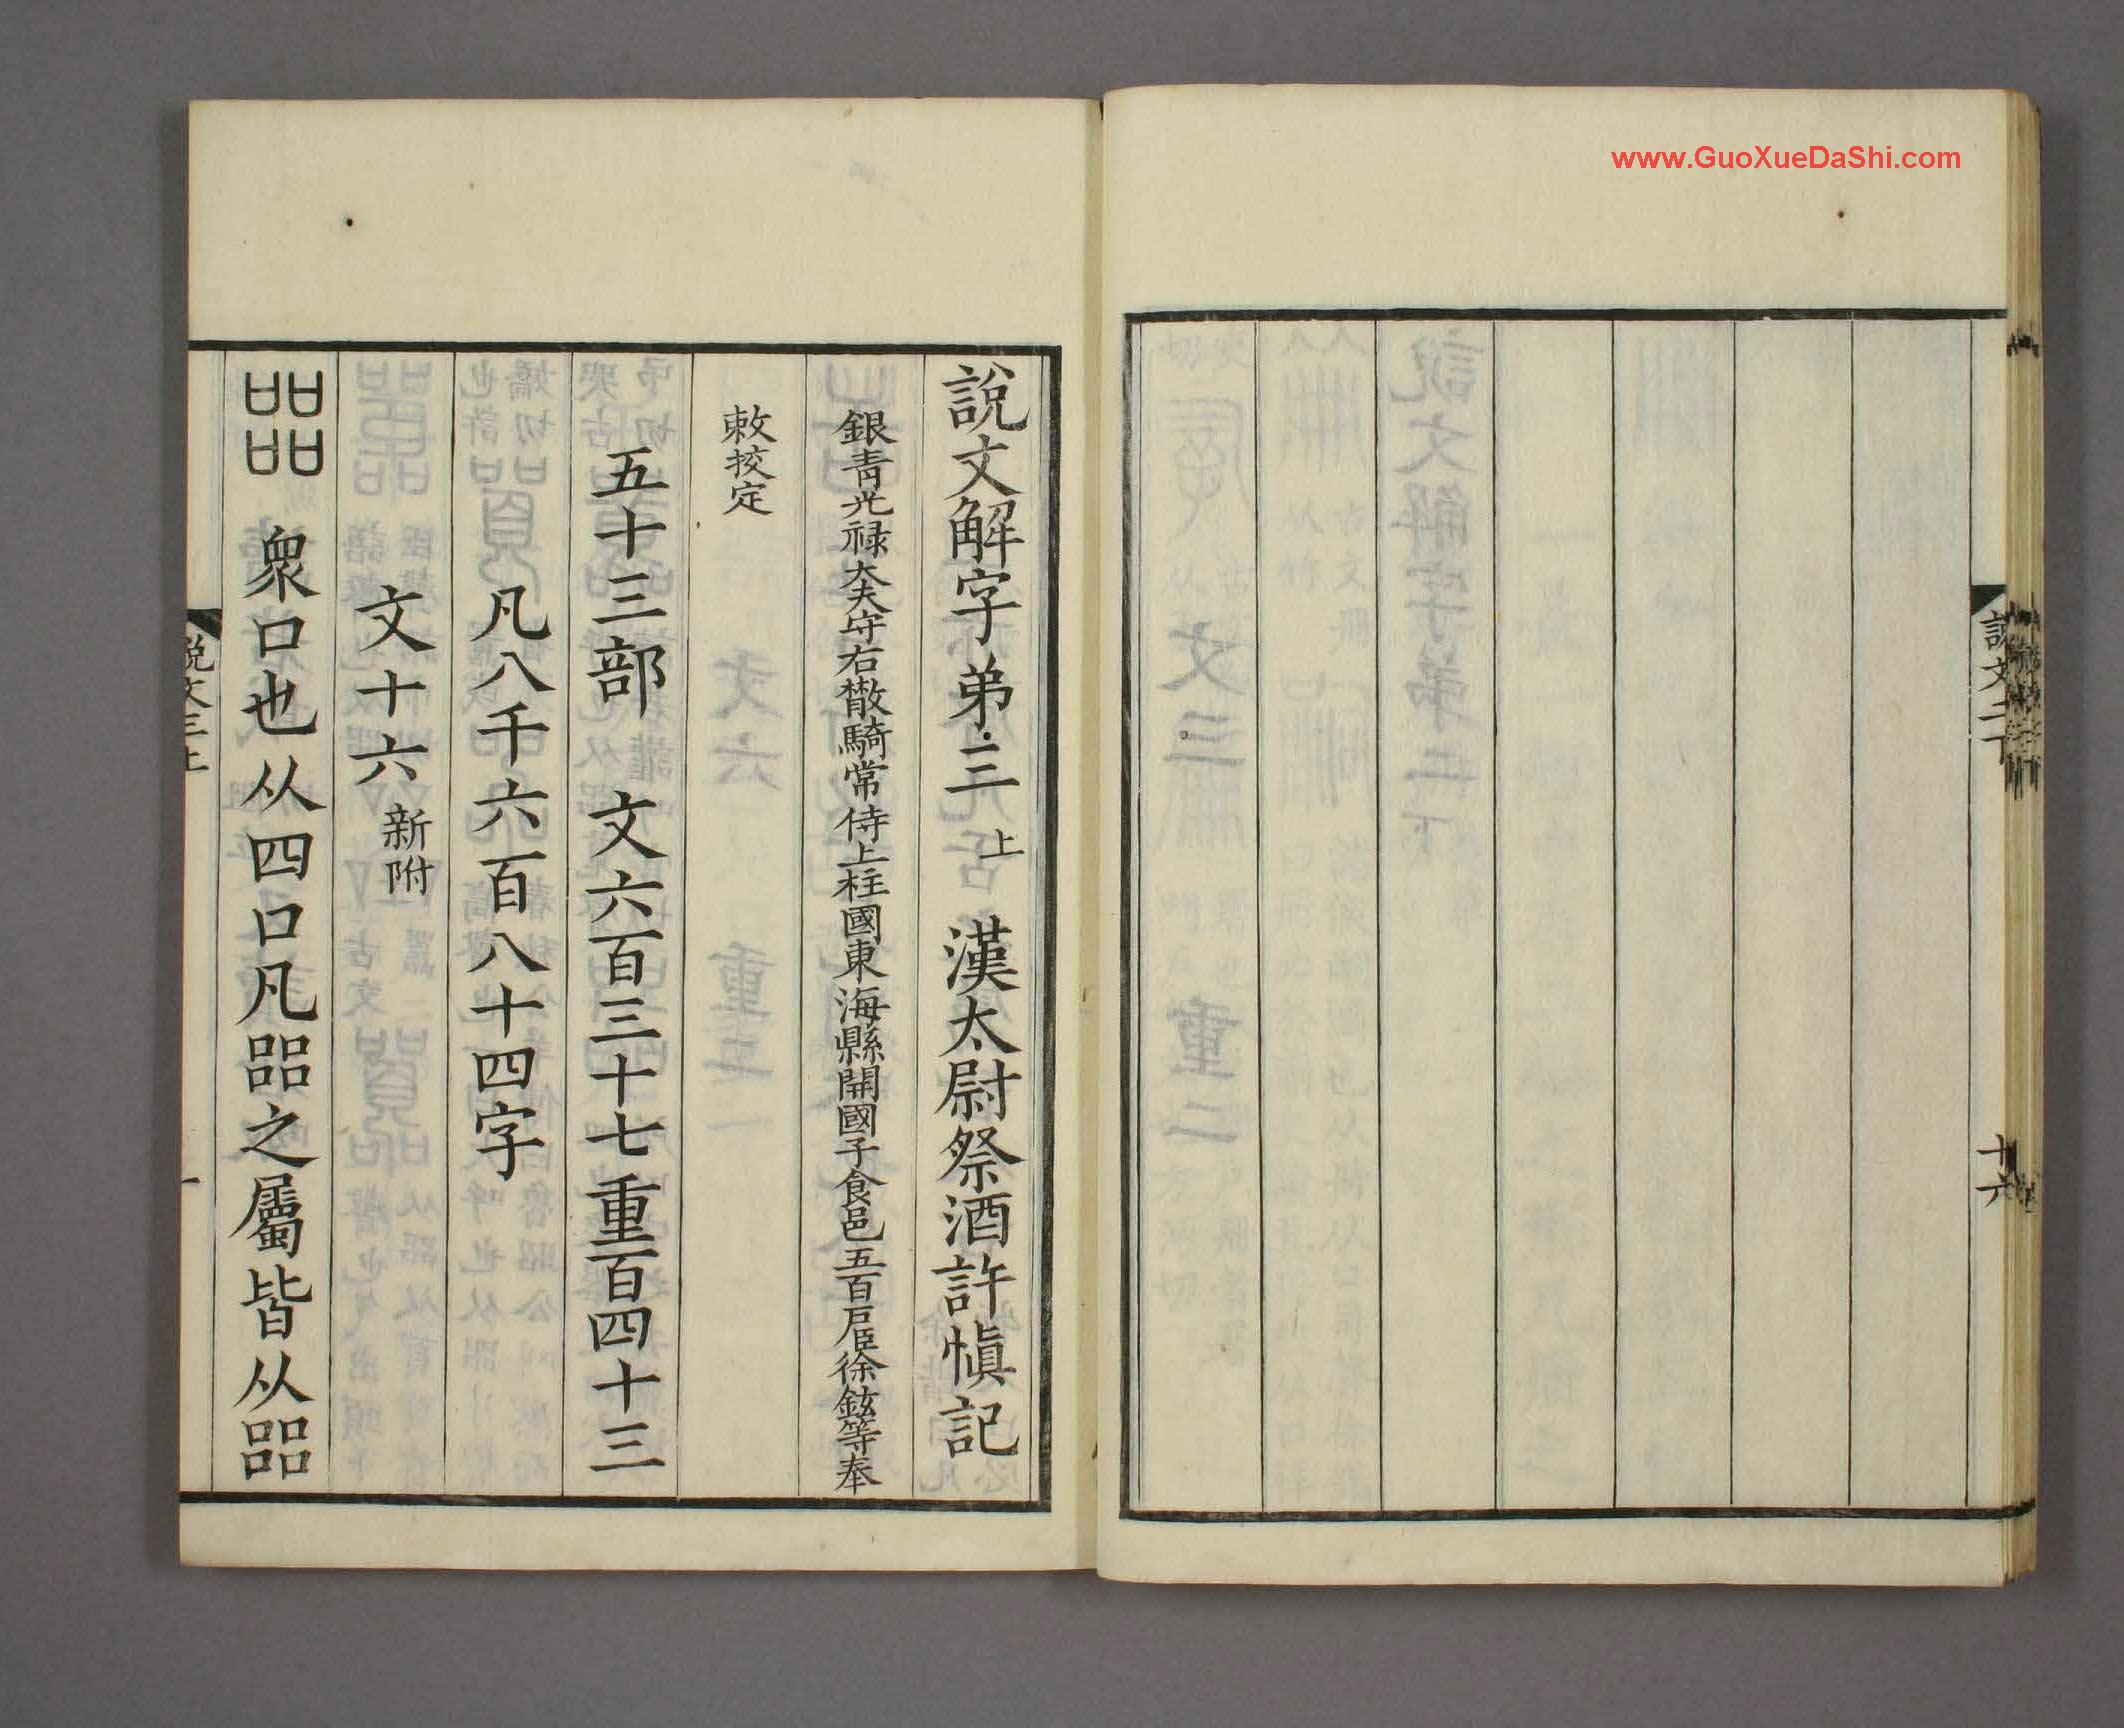 www.GuoXueDaShi.com
說文二下
十六
說文解字弟三上 漢太尉祭酒許慎記
銀青光禄大夫守右散騎常侍上柱國東海縣開國子食邑五百戶臣徐鉉等奉
敕挍定
五十三部 文六百三十七重百四十三
凡八千六百八十四字
文十六新附
㗊 衆口也从四口凡㗊之屬皆从㗊
說文三上
一